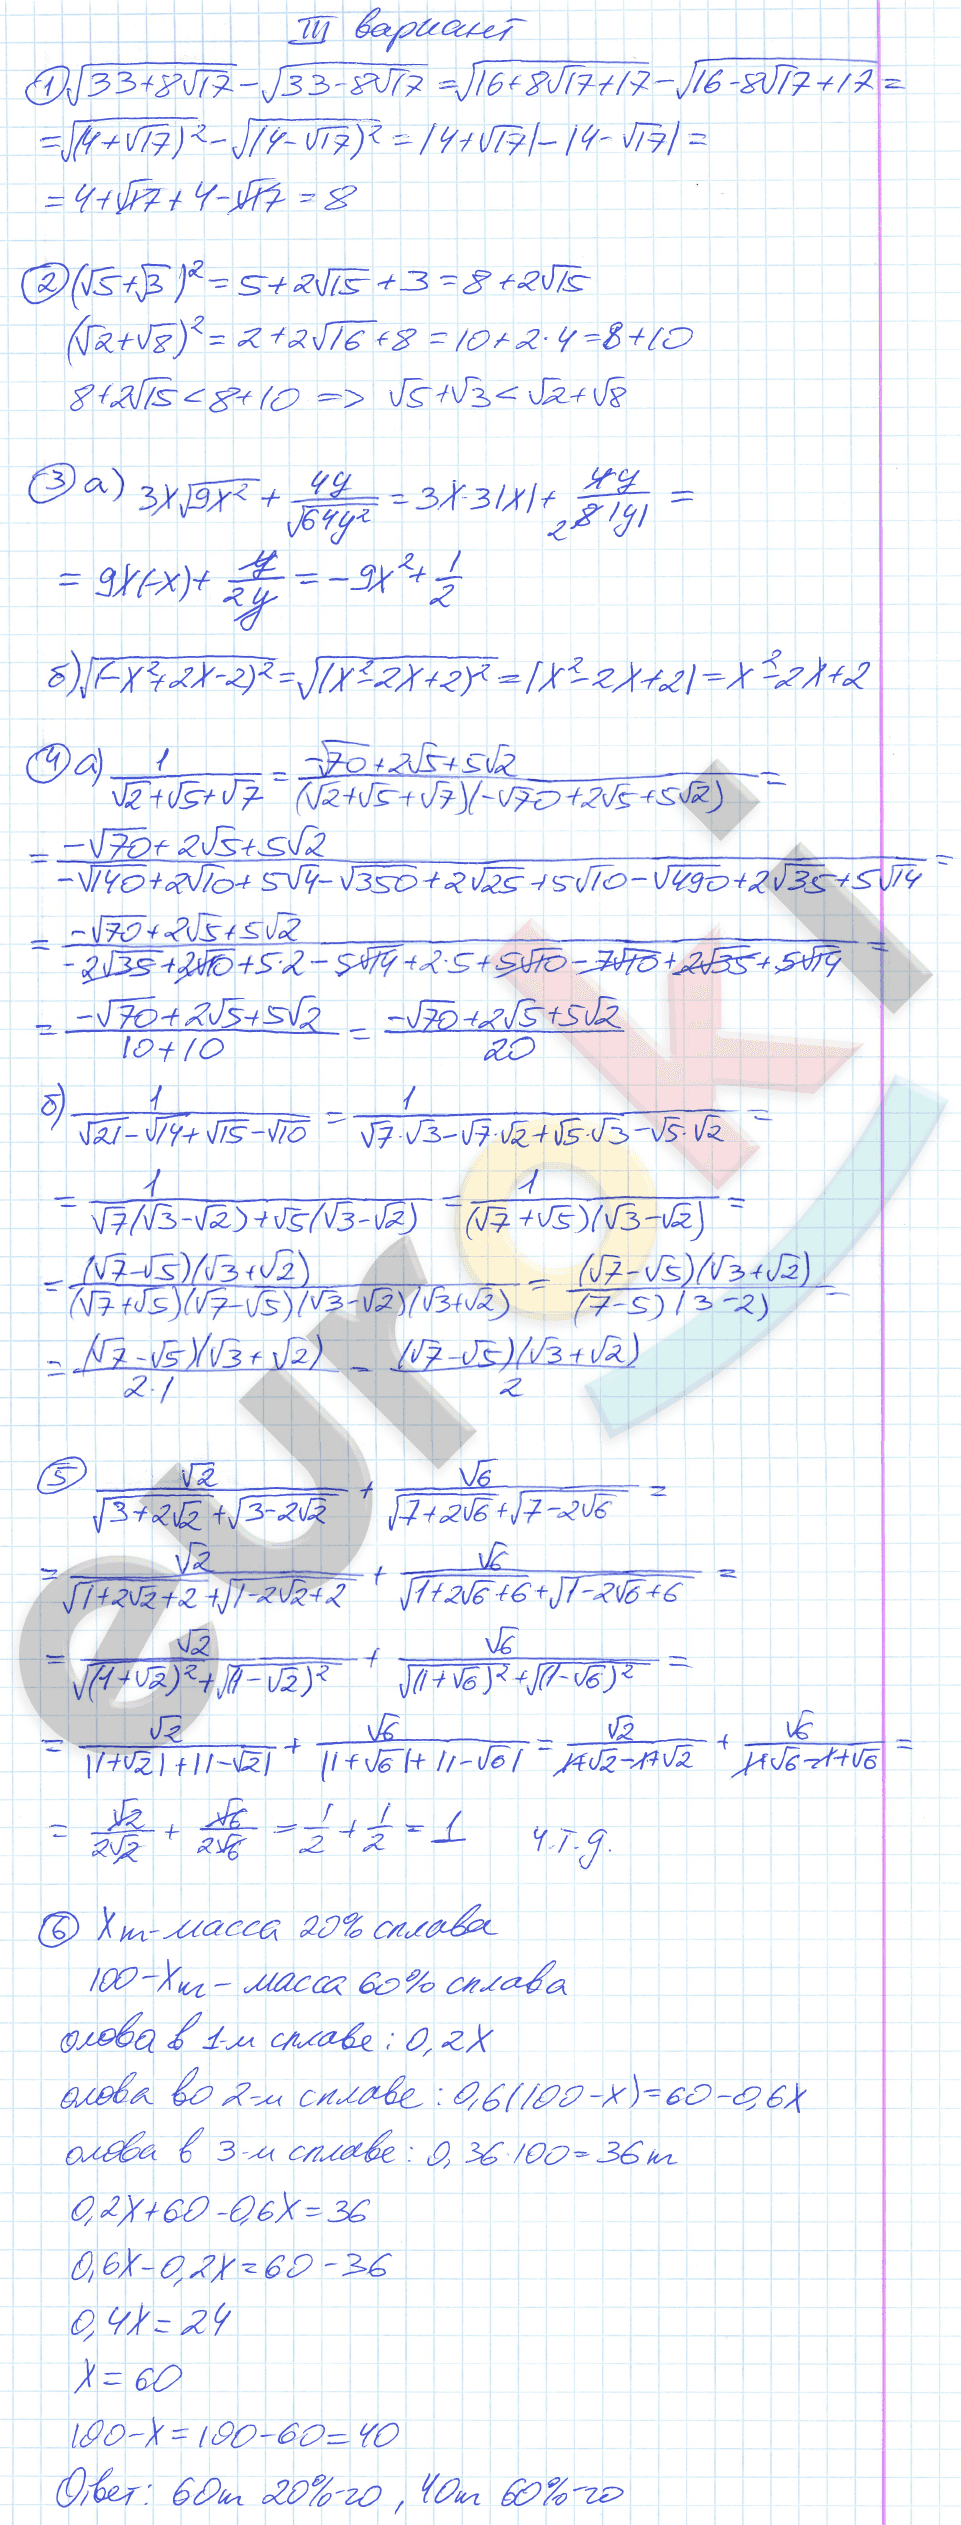 III вариант
① √(33+8√17) − √(33-8√17) = √(16+8√17+17) − √(16-8√17+17) =
= √((4+√17)²) − √((4-√17)²) = |4+√17| − |4-√17| =
= 4+√17+4-√17 = 8
② (√5+√3)² = 5+2√15+3 = 8+2√15
(√2+√8)² = 2+2√16+8 = 10+2·4 = 8+10
8+2√15 < 8+10 => √5+√3 < √2+√8
③ а) 3x√(9x²) + 4y/√(64y²) = 3x·3|x| + 4y/(8|y|) 2 =
= 9x(-x) + y/(2y) = -9x² + 1/2
б) √((-x²+2x-2)²) = √((x²-2x+2)²) = |x²-2x+2| = x²-2x+2
④ а) 1/(√2+√5+√7) = (-√70+2√5+5√2)/((√2+√5+√7)(-√70+2√5+5√2)) =
= (-√70+2√5+5√2)/(-√140+2√10+5√4-√350+2√25+5√10-√490+2√35+5√14) =
= (-√70+2√5+5√2)/(-2√35+2√10+5·2-5√14+2·5+5√10-7√10+2√35+5√14) =
= (-√70+2√5+5√2)/(10+10) = (-√70+2√5+5√2)/20
б) 1/(√21-√14+√15-√10) = 1/(√7·√3-√7·√2+√5·√3-√5·√2) =
= 1/(√7(√3-√2)+√5(√3-√2)) = 1/((√7+√5)(√3-√2)) =
= (√7-√5)(√3+√2)/((√7+√5)(√7-√5)(√3-√2)(√3+√2)) = (√7-√5)(√3+√2)/((7-5)(3-2)) =
= (√7-√5)(√3+√2)/(2·1) = (√7-√5)(√3+√2)/2
⑤ √2/(√(3+2√2)+√(3-2√2)) + √6/(√(7+2√6)+√(7-2√6)) =
= √2/(√(1+2√2+2)+√(1-2√2+2)) + √6/(√(1+2√6+6)+√(1-2√6+6)) =
= √2/(√((1+√2)²)+√((1-√2)²)) + √6/(√((1+√6)²)+√((1-√6)²)) =
= √2/(|1+√2|+|1-√2|) + √6/(|1+√6|+|1-√6|) = √2/(1+√2-1+√2) + √6/(1+√6-1+√6) =
= √2/(2√2) + √6/(2√6) = 1/2 + 1/2 = 1 ч.т.д.
⑥ Xт-масса 20% сплава
100-Xт - масса 60% сплава
олова в 1-м сплаве: 0,2X
олова во 2-м сплаве: 0,6(100-x)=60-0,6X
олова в 3-м сплаве: 0,36·100=36т
0,2X+60-0,6X=36
0,6X-0,2X=60-36
0,4X=24
X=60
100-X=100-60=40
Ответ: 60т 20%-го, 40т 60%-го
euroki